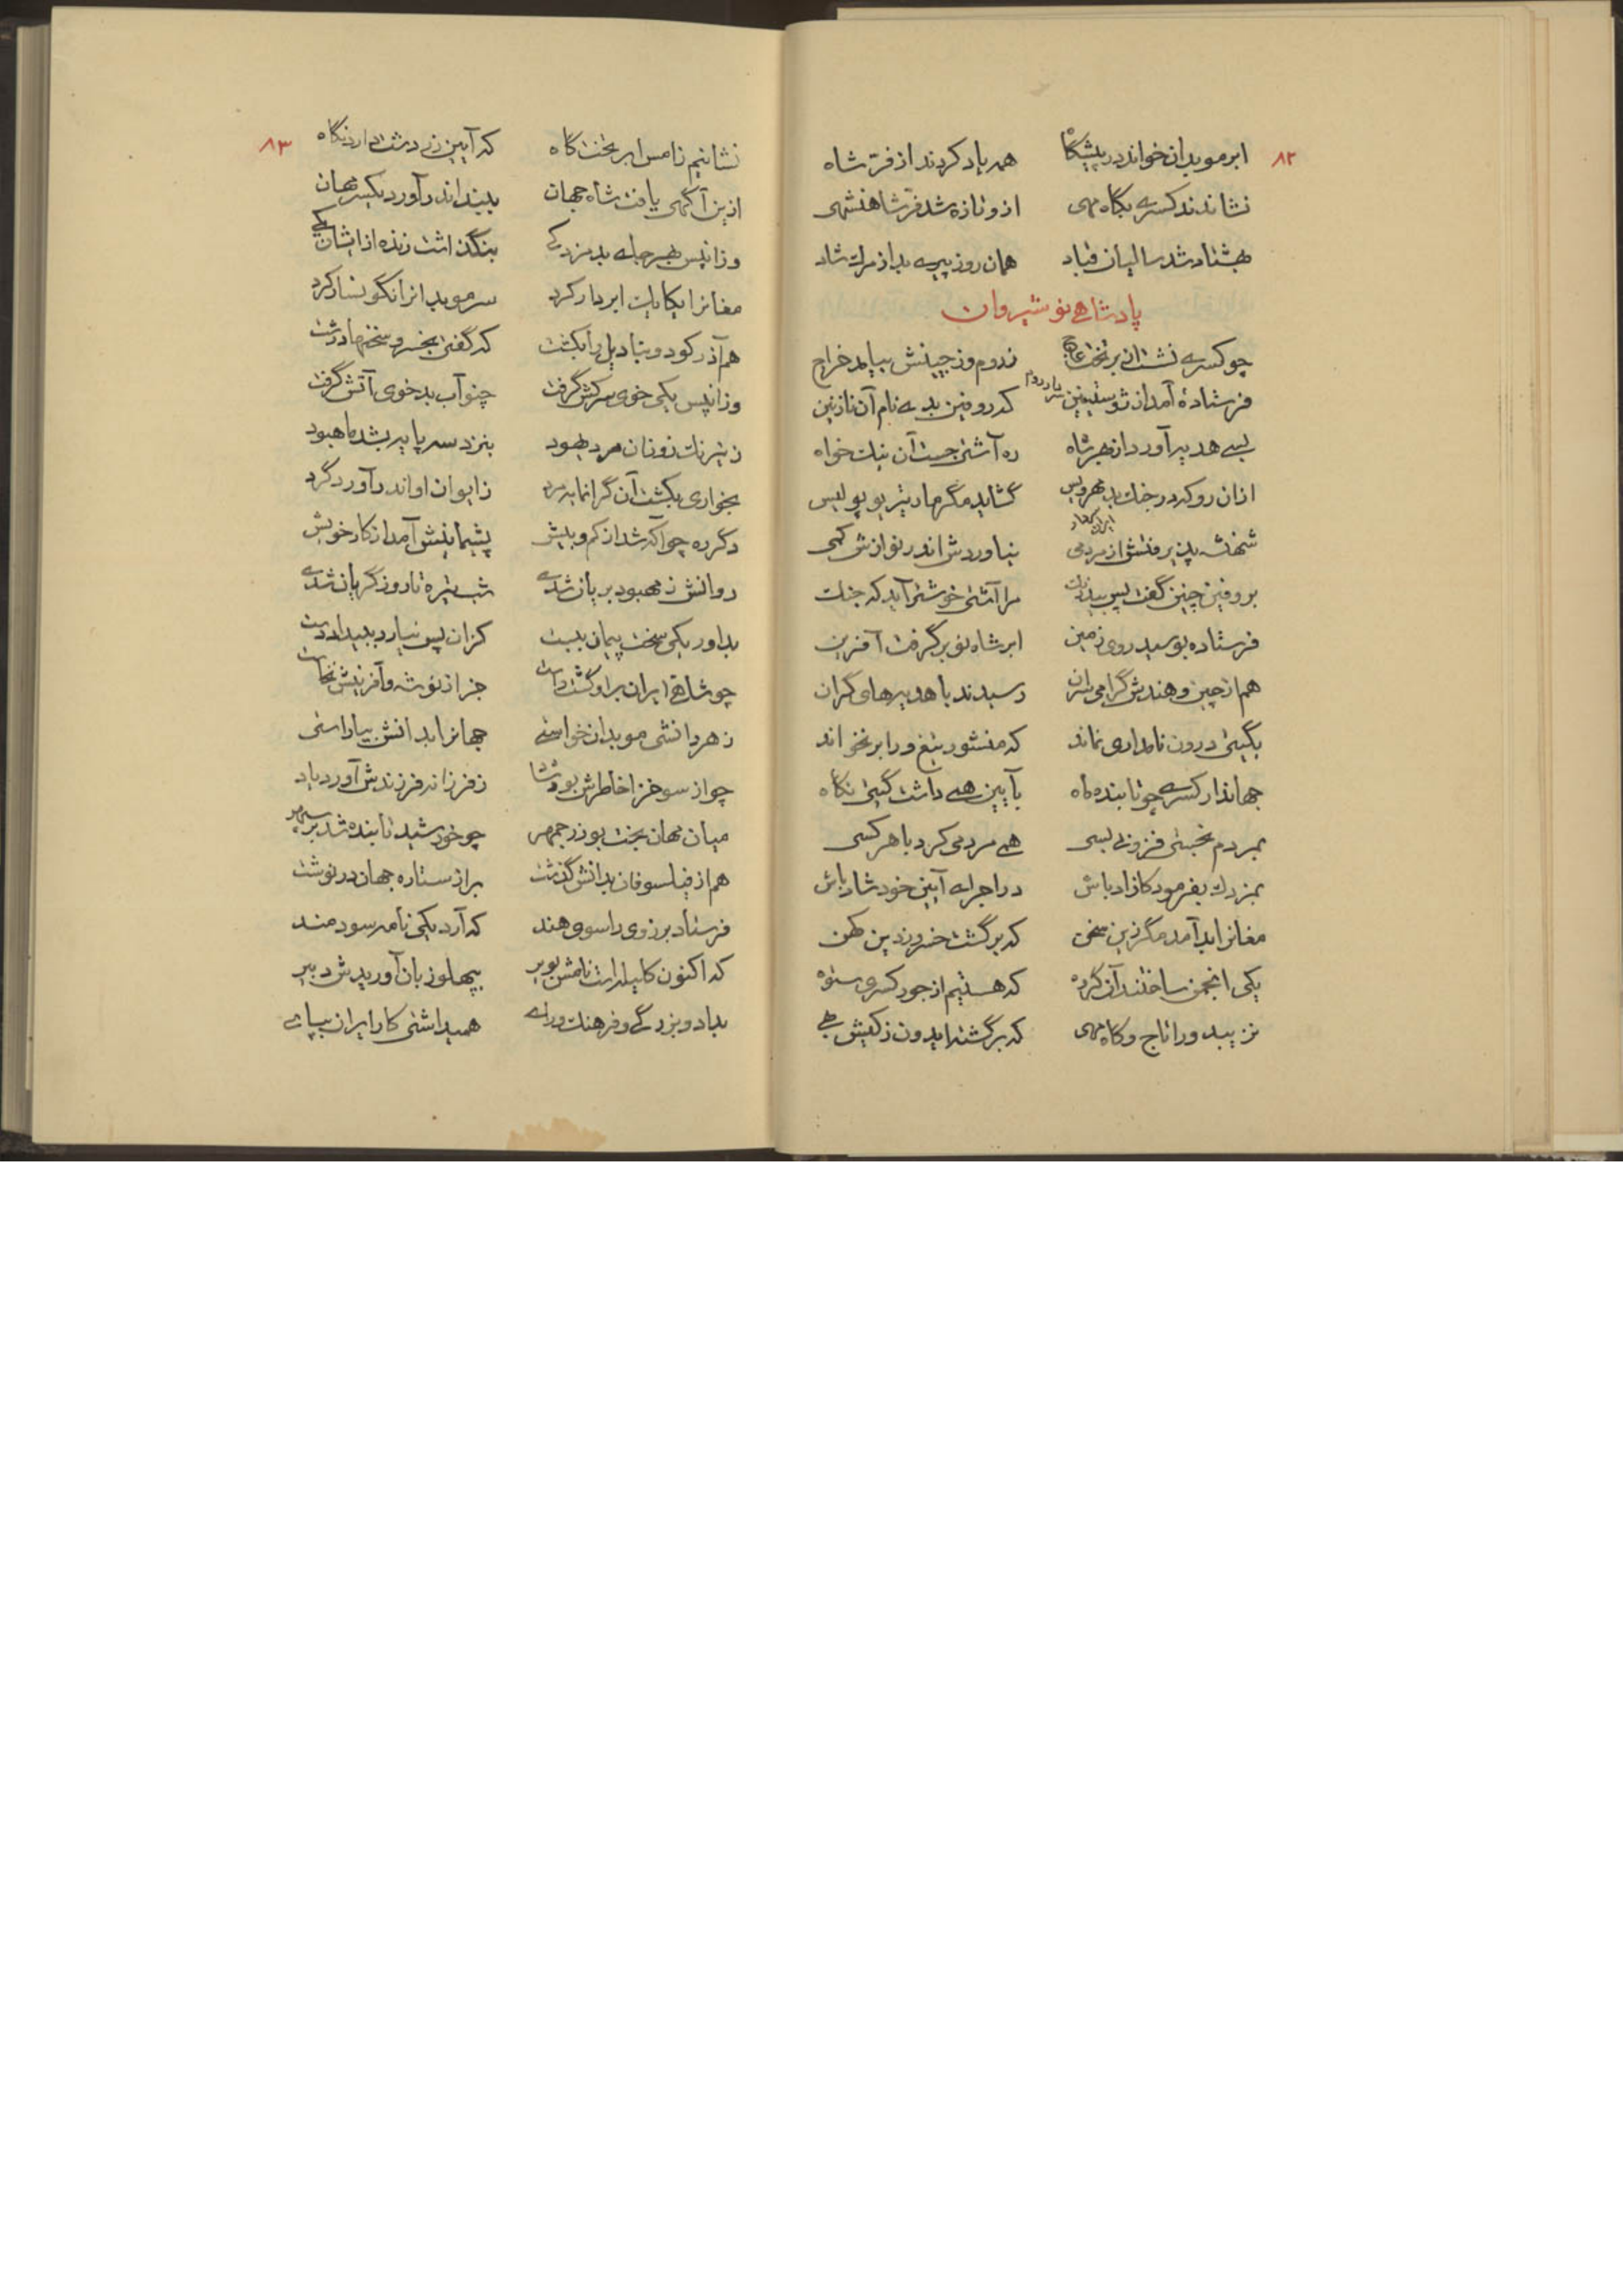 ۸۲
ابر موبدان خواند در پیشگاه همه یاد کردند از فرّ شاه
نشاندند کسری بگاه مهی ازو تازه شد فرّ شاهنشهی
بهشتاد شد سالیان قباد همان روز پیری بد از مرگ شاد
پادشاهی نوشیروان
چو کسری نشست از بر تخت عاج ز روم و ز چینش بیامد خراج
فرستادهٔ آمد از ژوستینین که روفین بدی نام آن نازنین
بسی هدیه آورد از بهر شاه ره آشتی جست آن نیک خواه
ازان رو که در جنگ بد گشاید مگر
شهنشه پذیرفتش از مردمی نیاوردش اندر نوازش کمی
بروفین چنین گفت پس مرا آشتی خوشتر آید که جنگ
فرستاده بوسید روی زمین ابر شاه نو بر گرفت آفرین
هم از چین و هندش گرامی سران رسیدند با هدیه‌های گران
بگیتی درون نامداری نماند که منشور تیغ ورا بر نخواند
جهاندار کسری چو تابنده ماه بآیین همی داشت گیتی نگاه
بمردم فزونی بسی همی مردمی کرد با هر کسی
بمزدک بفرمود کازاد باش در اجرای آیین خود شاد باش
مغانرا بد آمد مگر زین سخن که برگشت خسرو ز دین کهن
یکی انجمن ساختند آن گروه که هستیم از جور کسری ستوه
نزیبد ورا تاج و گاه مهی که برگشته ایدون ز کیش بهی
۸۳
نشانیم زامس ابر تخت گاه که آیین زردشت دارد نگاه
ازین آگهی یافت شاه جهان ببند اندر آورد یکسر مهان
وزانپس بهر جای بد مزدکی بنگذاشت زنده ازایشان یکی
مغانرا یکایک ابر دار کرد سر موبدانرا نگونسار کرد
هم آذر را بکشت که گفتی بخسرو سخنها درشت
وزانپس یکی خوی سرکش گرفت چنو آب بد خوی آتش گرفت
ز نیرنگ زوران مرد یهود بنزد سر پایه بد ماهبود
بخواری بکشت آن گرانمایه مرد ز ایوان او اندر آورد گرد
دگر ره چو آگه شد از کم و بیش پشیمانیش آمد از کار خویش
روانش ز مهبود بریان شدی شب تیره تا روز گریان شدی
بداور یکی سخت پیمان ببست کزان پس نیارد ببیداد دست
چو شاهی ایران براو گشت راست جز از توشه و آفرینش نخواست
ز هر دانشی موبدان خواستی جهانرا بدانش بیاراستی
چو از سوخرا خاطرش بود شاد ز فرزانه فرزندش آورد یاد
میان مهان بخت بوزرجمهر چو خورشید تابنده شد بر سپهر
هم از فیلسوفان بدانش گذشت براز ستاره جهان در نوشت
فرستاد برزوی را سوی هند که آرد یکی نامه سودمند
که اکنون کلیله است نامش بویر بپهلو زبان آوریدش دبیر
بداد و بزرگی و فرهنگ و رای همیداشتی کار ایران بپای